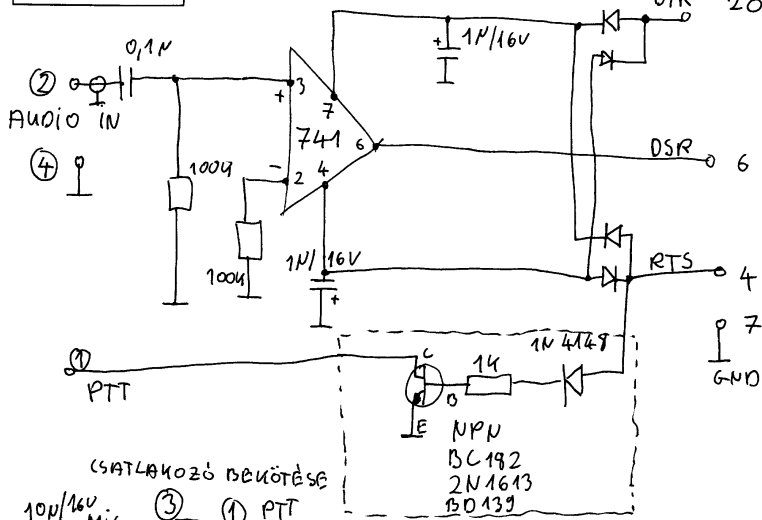 20
1N/16V
0,1N
+
②
3
+
7
AUDIO IN
741
6
DSR
6
④
100k
-
2
4
100k
1N/16V
RTS
4
+
7
GND
①
PTT
C
1K
1N4148
B
E
NPN
BC182
2N1613
BD139
CSATLAKOZÓ BEKÖTÉSE
10N/16V
③
① PTT